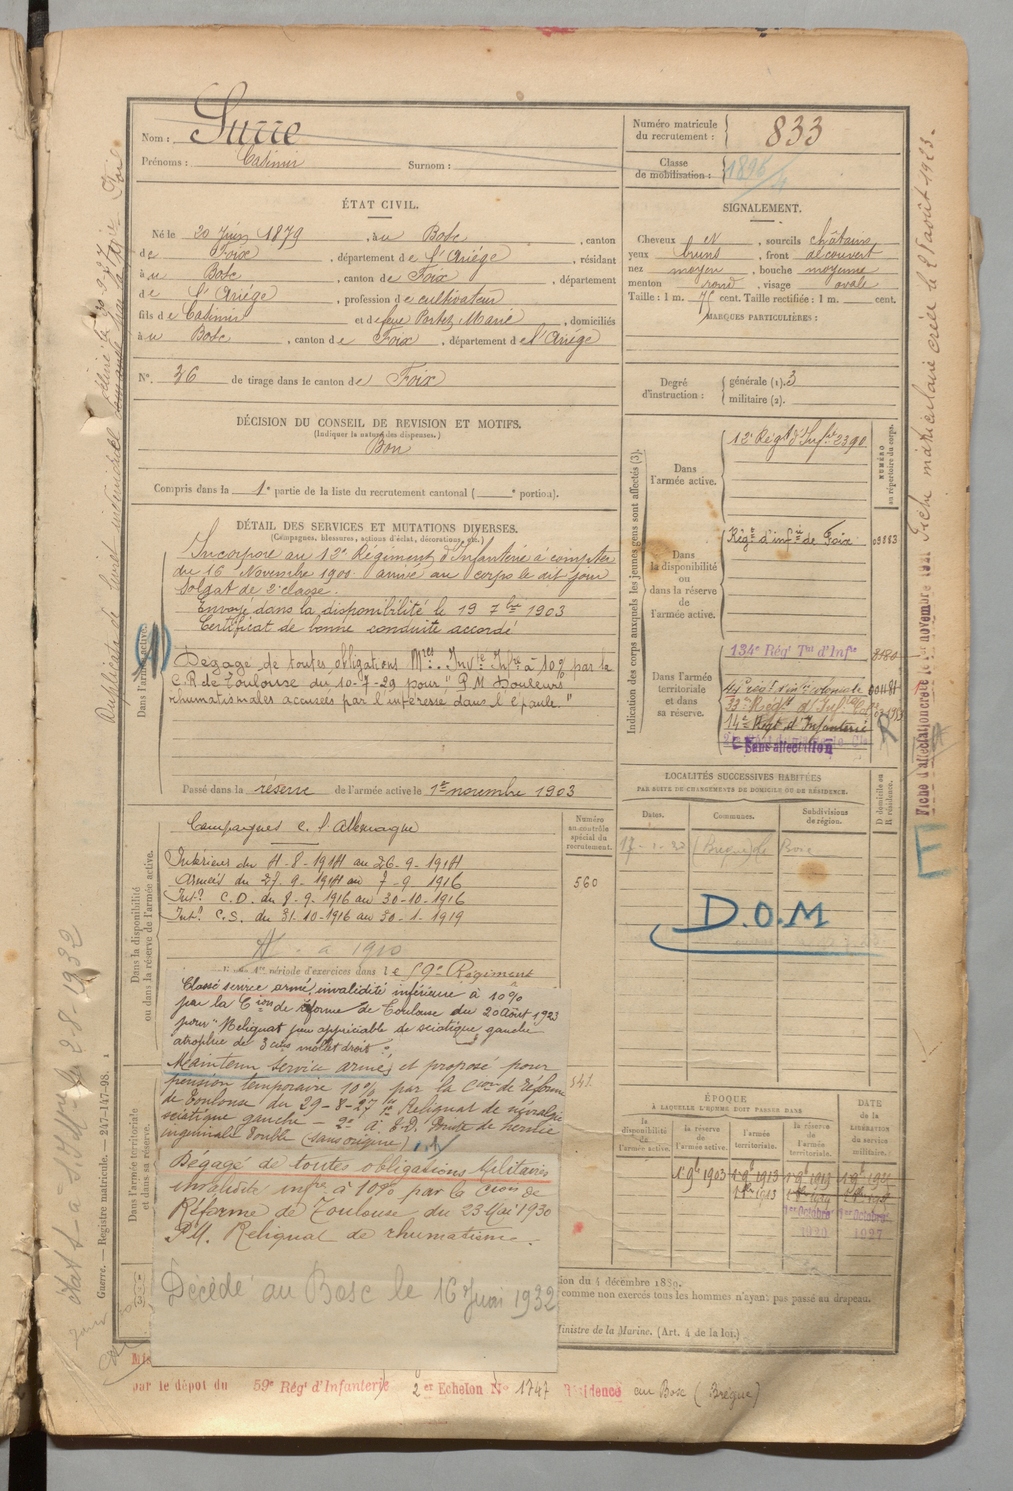 Nom : Surre
Prénoms : Casimir Surnom :
Numéro matricule du recrutement : 833
Classe de mobilisation : 1896/4
ÉTAT CIVIL.
Né le 20 Juin 1879, à u Bosc, canton
de Foix, département de l'Ariège, résidant
à u Bosc, canton de Foix, département
de l'Ariège, profession de cultivateur
fils de Casimir et de feue Portet Marie, domiciliés
à u Bosc, canton de Foix, département de l'Ariège
N° 36 de tirage dans le canton de Foix
SIGNALEMENT.
Cheveux N, sourcils châtains
yeux bruns, front découvert
nez moyen, bouche moyenne
menton rond, visage ovale
Taille : 1 m. 75 cent. Taille rectifiée : 1 m. cent.
MARQUES PARTICULIÈRES :
Degré d'instruction : générale (1). 3
militaire (2).
DÉCISION DU CONSEIL DE REVISION ET MOTIFS.
(Indiquer la nature des dispenses.)
Bon
Compris dans la 1e partie de la liste du recrutement cantonal ( e portion).
DÉTAIL DES SERVICES ET MUTATIONS DIVERSES.
(Campagnes, blessures, actions d'éclat, décorations, etc.)
Dans l'armée active.
Incorporé au 12e Régiment d'Infanterie à compter
du 16 Novembre 1900 arrivé au corps le dit jour
Soldat de 2e classe.
Envoyé dans la disponibilité le 19 7bre 1903
Certificat de bonne conduite accordé
Dégagé de toutes obligations Mres. Invté Infre à 10% par la
C.R. de Toulouse du 10-7-29 pour "P.M. Douleurs
rhumatismales accusées par l'intéressé dans l'épaule."
Passé dans la réserve de l'armée active le 1er novembre 1903
Dans la disponibilité ou dans la réserve de l'armée active.
Campagnes c. l'Allemagne
Intérieur du 4-8-1914 au 26-9-1914
Armées du 27-9-1914 au 7-9 1916
Intr C.D. du 8-9-1916 au 30-10-1916
Intr C.S. du 31-10-1916 au 30-1-1919
A à 1910
période d'exercices dans le 59e Régiment
Classé service armé, invalidité inférieure à 10%
par la Cion de réforme de Toulouse du 20 Août 1923
pour "Reliquat peu appréciable de sciatique gauche
atrophie de 3 c/m mollet droit."
Maintenu service armé et proposé pour
pension temporaire 10% par la Cion de réforme
de Toulouse du 29-8-27 1° Reliquat de névralgie
sciatique gauche - 2° à 8-2. Pointe de hernie
inguinale double (sans origine)
Dans l'armée territoriale et dans sa réserve.
Dégagé de toutes obligations Militaires
invalidité infre à 10% par la Cion de
Réforme de Toulouse du 23 Mai 1930
P.M. Reliquat de rhumatisme.
Décédé au Bosc le 16 Juin 1932
Numéro au contrôle spécial du recrutement.
560
541
Indication des corps auxquels les jeunes gens sont affectés (3).
NUMÉRO au répertoire du corps.
Dans l'armée active.
12e Régt d'Infie 2390
Dans la disponibilité ou dans la réserve de l'armée active.
Régt d'infie de Foix 03883
Dans l'armée territoriale et dans sa réserve.
134e Régt Tal d'Infie
14e Régt d'Infanterie
Sans affectation
LOCALITÉS SUCCESSIVES HABITÉES
PAR SUITE DE CHANGEMENTS DE DOMICILE OU DE RÉSIDENCE.
Dates. Communes. Subdivisions de région. D domicile ou R résidence.
D.O.M
E
ÉPOQUE
À LAQUELLE L'HOMME DOIT PASSER DANS
la disponibilité de l'armée active. la réserve de l'armée active. l'armée territoriale. la réserve de l'armée territoriale.
DATE de la LIBÉRATION du service militaire.
1er 9bre 1903
1er Octobre 1927
sion du 4 décembre 1889.
comme non exercés tous les hommes n'ayant pas passé au drapeau.
Ministre de la Marine. (Art. 4 de la loi.)
par le dépôt du 59e Régt d'Infanterie 2er Echelon N° 1747 Résidence au Bosc (Brèque)
Guerre. — Registre matricule. — 247-147-98.
Fiche d'affectation créée le 1er novembre 1921
Fiche matriculaire créée le 21 août 1923.